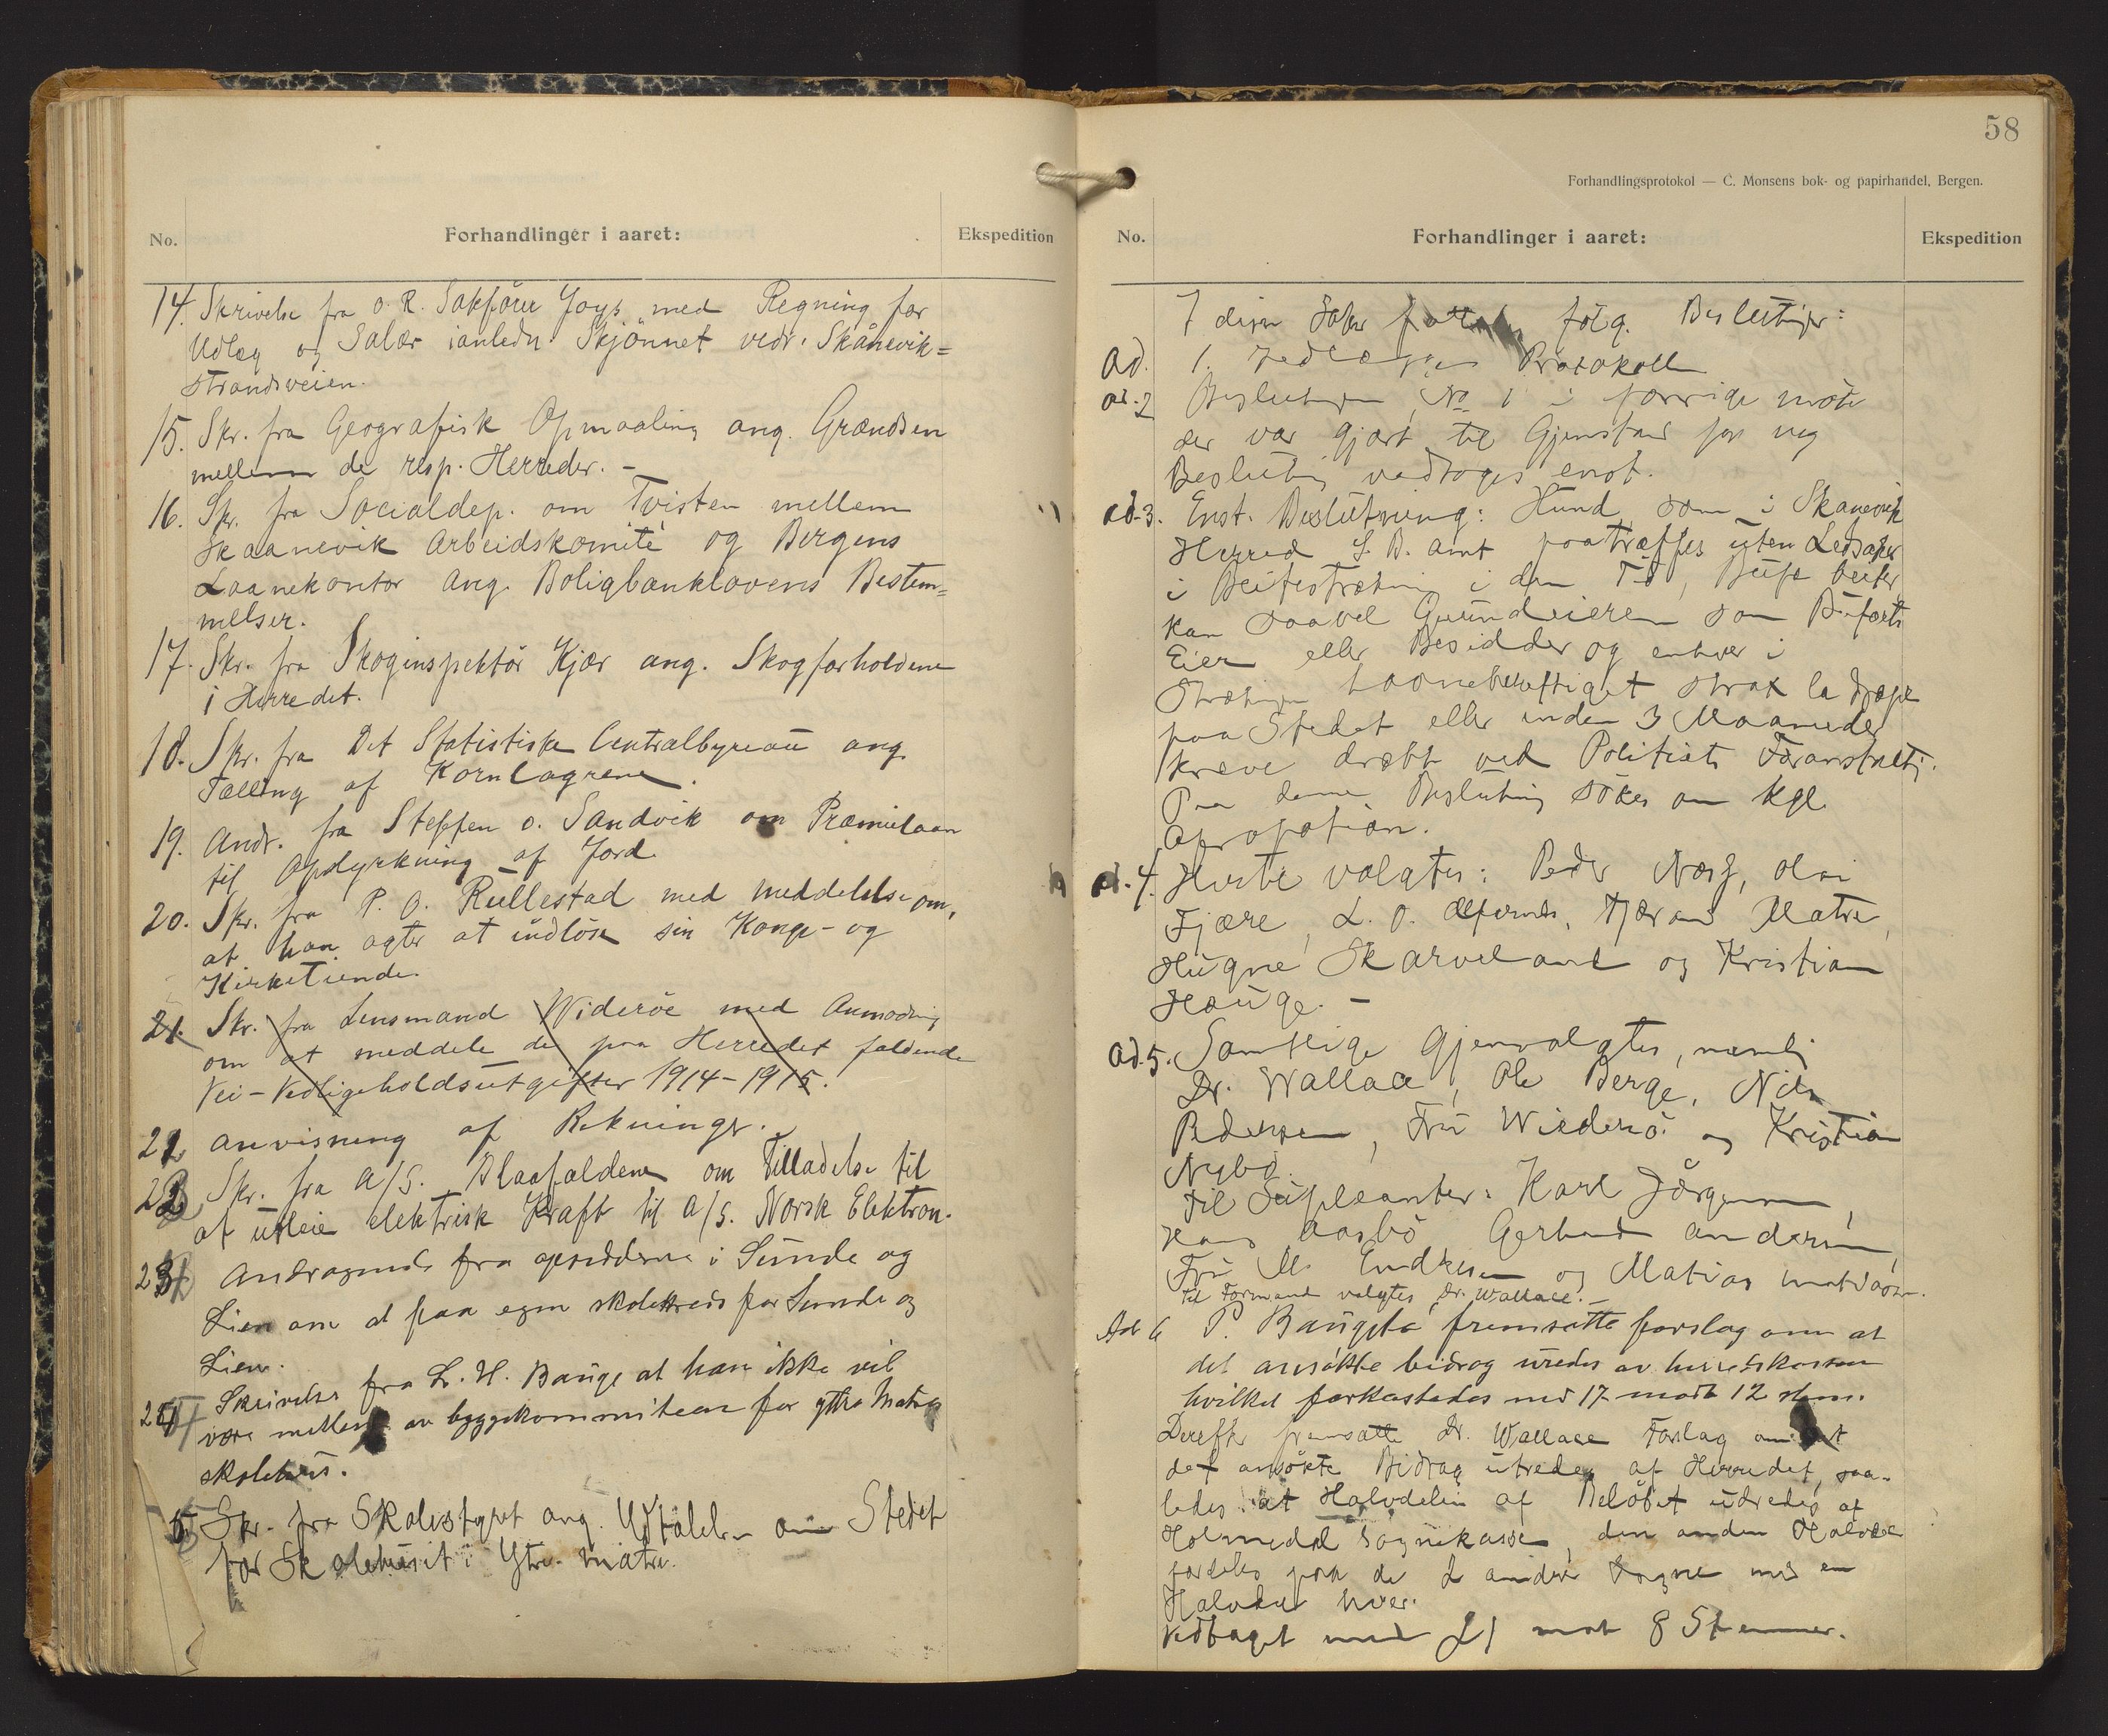 No.
Forhandlinger i aaret:
Ekspedition
14. Skrivelse fra O. R. Sakfører Joys med Regning for
Udlæg og Salær ianledn. Skjønnet vedr. Skånevik=
strandsveien.
15. Skr. fra Geografisk Opmaaling ang. Grændsen
mellem de resp. Herreder. -
16. Skr. fra Socialdep. om Tvisten mellem
Skaanevik Arbeidskomité og Bergens
Laanekontor ang. Boligbanklovens Bestem=
melser.
17. Skr. fra Skoginspektør Kjær ang. Skogforholdene
i Herredet.
18. Skr. fra Det Statistiske Centralbyreau ang.
Tælling af Kornlagrene.
19. Andr. fra Steffen O. Sandvik om Præmielaan
til Opdyrkning af Jord.
20. Skr. fra P. O. Rullestad med meddelelse om,
at han agter at indløse sin Konge- og
Kirketiende.
21. Skr. fra Lensmand Widerøe med Anmodning
om at meddele de paa Herredet faldende
Vei-Vedligeholdsutgifter 1914-1915.
21 Anvisning af Rekninger.
22 Skr. fra A/S. Blaafaldene om Tilladelse til
at utleie elektrisk Kraft til A/S. Norsk Elektron.
23 Andragende fra opsidderne i Sunde og
Lien om at faa egen skolekreds for Sunde og
Lien.
24 Skrivelse fra L. H. Bauge at han ikke vil
være medlem av byggekommiteen for ytre Matre
skolehus.
5 Skr. fra Skolestyret ang. Udtalelse om Stedet
for Skolehuset i Ytre Matre.
58
Forhandlingsprotokol — C. Monsens bok- og papirhandel, Bergen.
No.
Forhandlinger i aaret:
Ekspedition
I disse Saker fattedes følg. Beslutninger:
ad. 1. Vedlægges Protokollen
ad. 2 Beslutningen No 1 i forrige møte
der var gjort til Gjenstand for ny
Beslutning vedtoges enst.
ad. 3. Enst. Beslutning: Hund som i Skanevik
Herred S. B. Amt paatræffes uten Ledsager
i Beitestrækning i den Tid, Bufe beiter,
kan saavel Grundeieren som Bufæets
Eier eller Besidder og enhver i
Strækningen havneberettiget strax la dræpe
paa Stedet eller inden 3 Maaneder
kræve dræbt ved Politiets Foranstaltn.
Paa denne Beslutning søkes om kgl.
Aprobation.
ad. 4. Hertil valgtes: Peder Næs, Olai
Fjære, L. O. Alfernes, Tjæran Matre,
Hugne Skarveland og Kristian
Hauge. -
ad. 5. Samtlige gjenvalgtes, nemlig
Dr. Wallace, Ole Berge, Nils
Pedersen, Fru Widerø og Kristian
Nybø.
Til Suppleanter: Karl Jørgensen,
Hans Aasbø, Gerhard Andersen,
Fru M. Endresen og Matias
Til Formand valgtes Dr. Wallace. -
Ad 6 P. Baugstø fremsatte forslag om at
det ansøkte bidrag utredes av herredskassen
hvilket forkastedes med 17 modt 12 stem.
Derefter fremsatte Dr. Wallace Forslag om at
det ansøkte Bidrag utredes af Herredet, saa-
ledes at Halvdelen af Beløbet udredes af
Holmedal Sognekasse, den anden Halvdel
fordeles paa de 2 andre Sogne med en
Halvdel hver.
Vedtaget med 21 mot 8 Stemmer.